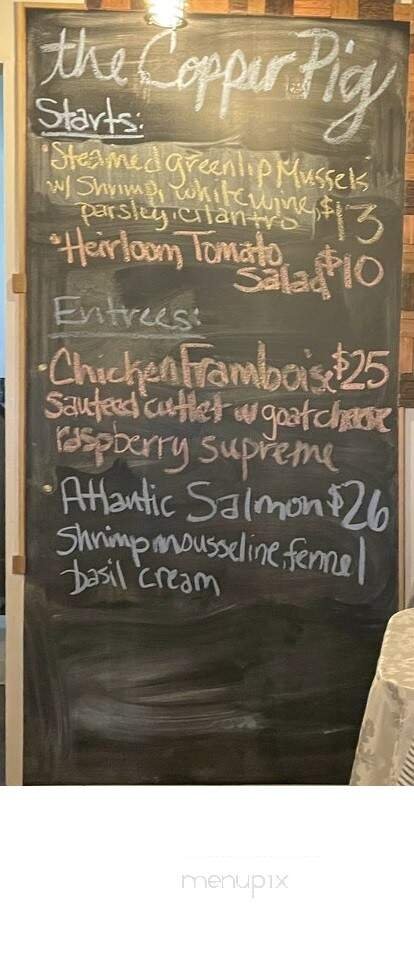 the Copper Pig
Starts:
• Steamed greenlip Mussels
w/ Shrimp, white wine, $13
parsley, cilantro
• Heirloom Tomato
Salad $10
Entrees:
• Chicken Framboise $25
Sauteed cutlet w goat cheese
raspberry supreme
• Atlantic Salmon $26
Shrimp mousseline, fennel
basil cream
menupix